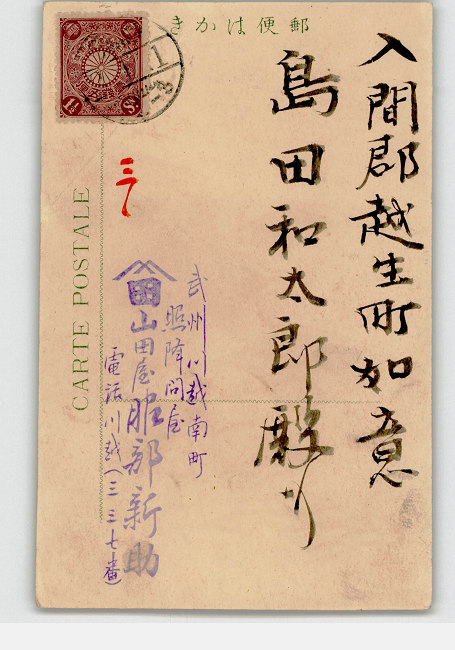 郵便はかき
入間郡越生町如意
島田和太郎殿
三
CARTE POSTALE
武州川越南町
照降問屋
山田屋服部新助
電話川越(三三七番)
1½ Sn